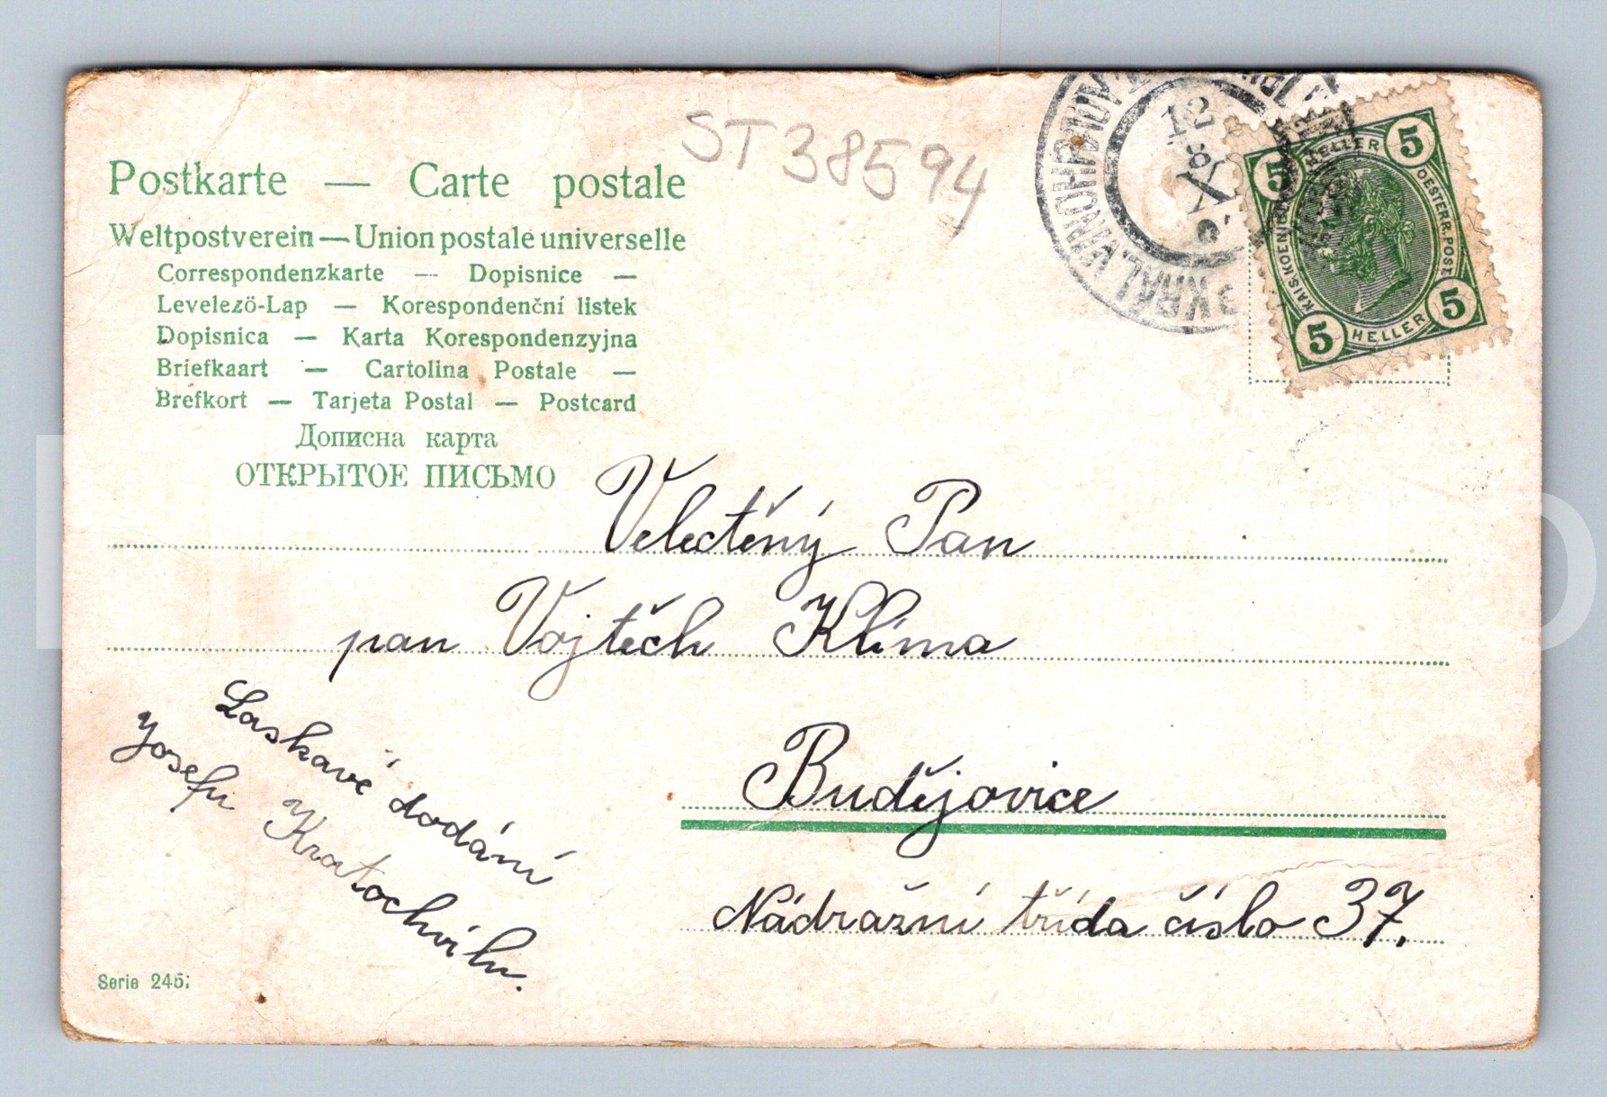 ST38594
Postkarte — Carte postale
Weltpostverein — Union postale universelle
Correspondenzkarte — Dopisnice —
Levelezö-Lap — Korespondenční listek
Dopisnica — Karta Korespondenzyjna
Briefkaart — Cartolina Postale —
Brefkort — Tarjeta Postal — Postcard
Дописна карта
ОТКРЫТОЕ ПИСЬМО
12
8
X
KRÁL. VINOHRADY
5 HELLER 5
KAIS. KOENIG. OESTERR. POST
5 HELLER 5
Velectěný Pan
pan Vojtěch Klíma
Budějovice
Nádražní třída číslo 37.
Laskavé dodání
Josefu Kratochvílu.
Serie 245;